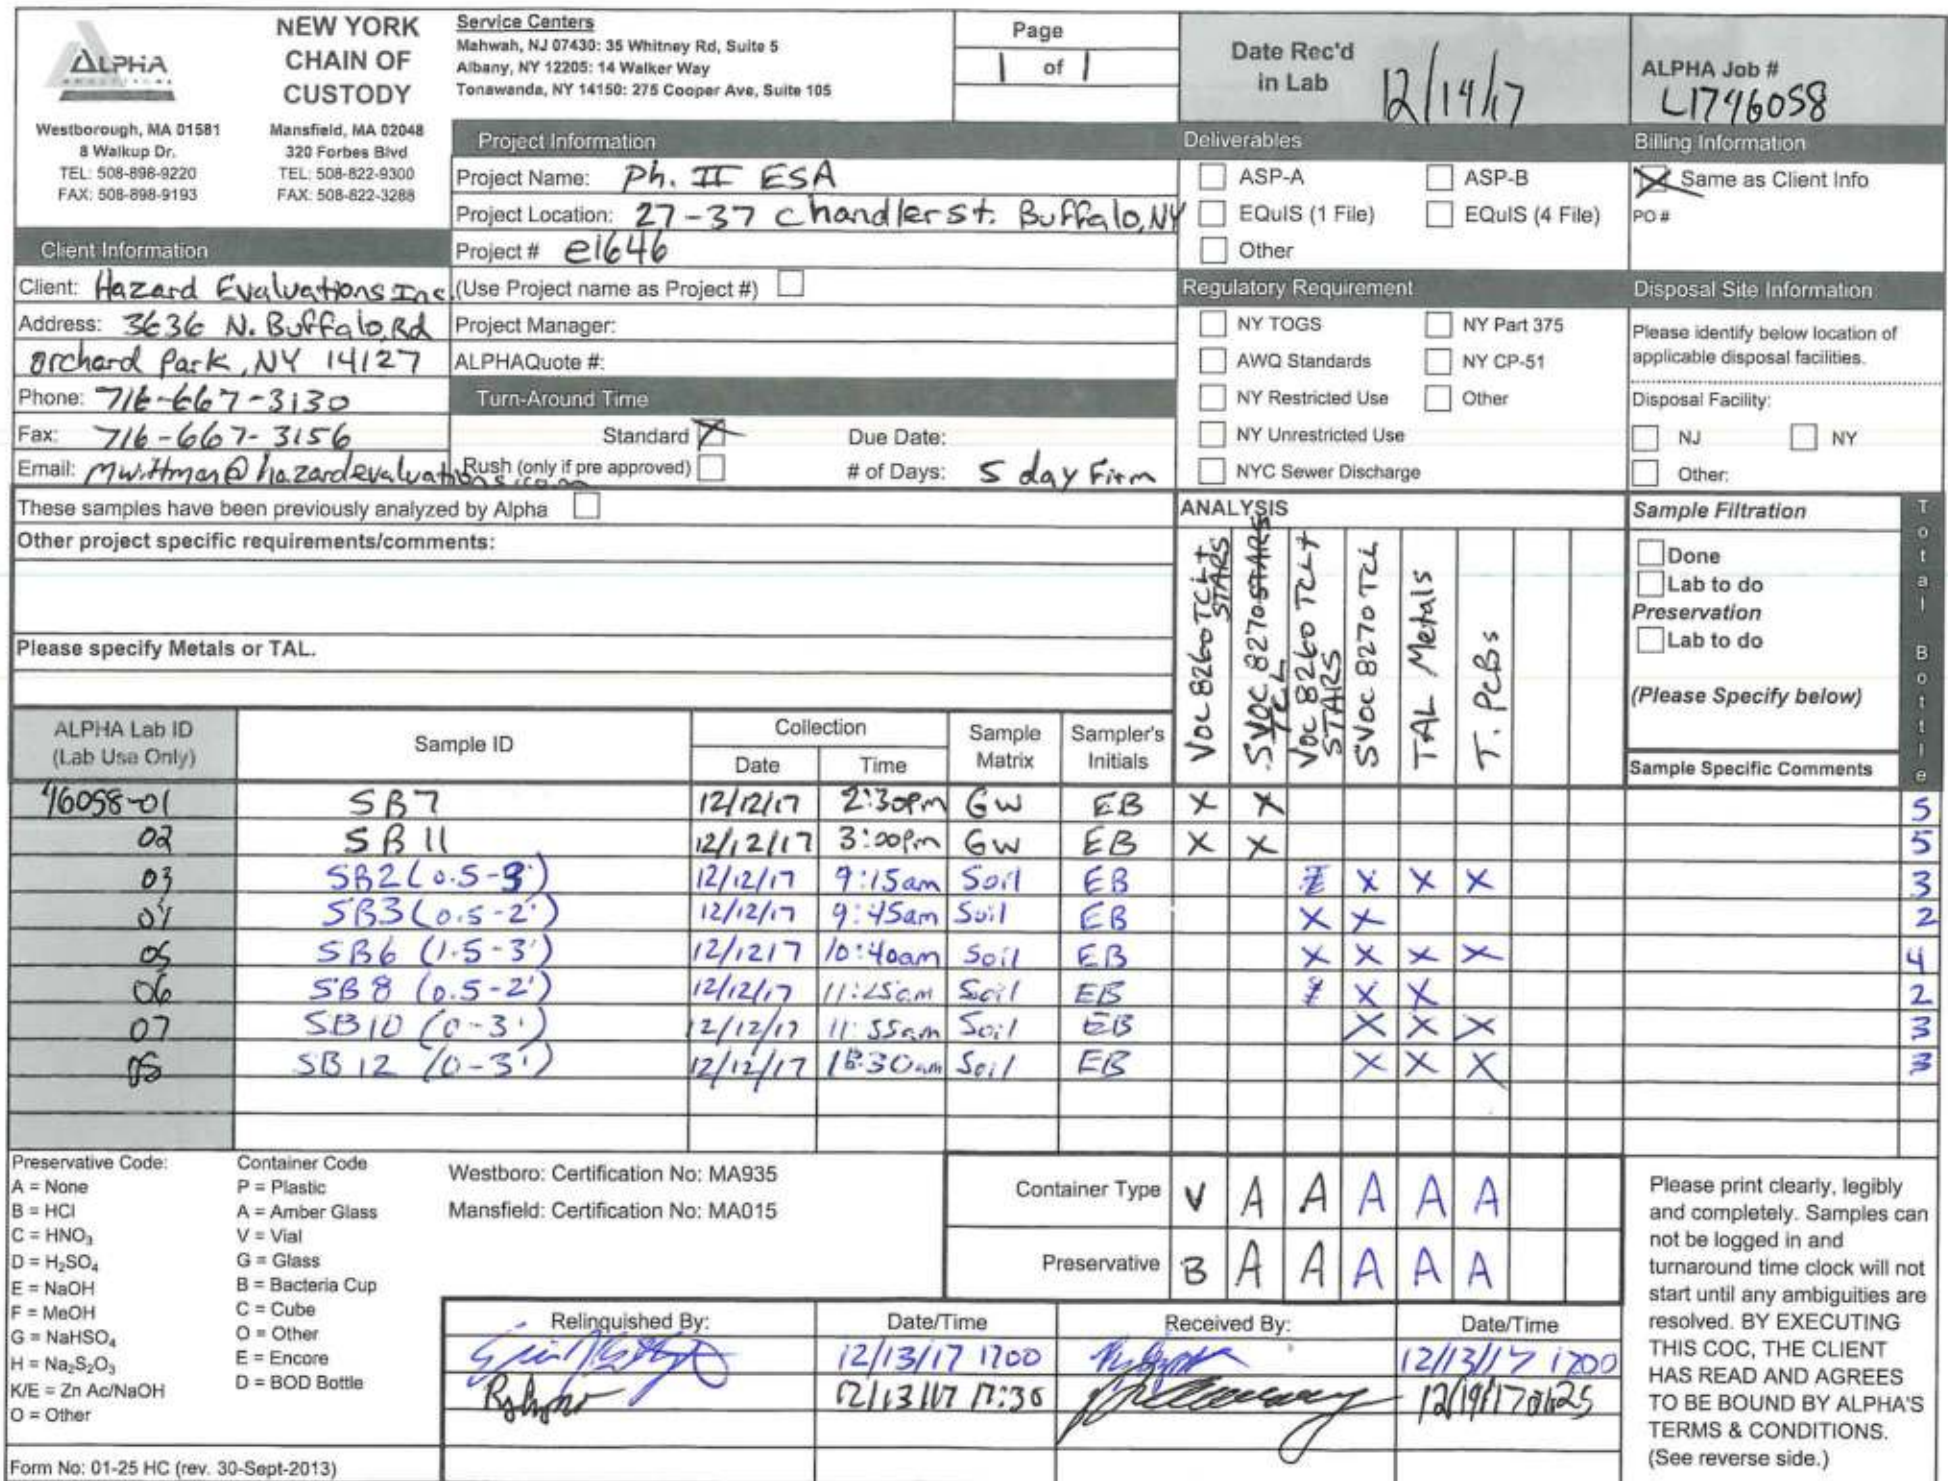 ALPHA
NEW YORK
CHAIN OF
CUSTODY
Westborough, MA 01581
8 Walkup Dr.
TEL: 508-898-9220
FAX: 508-898-9193
Mansfield, MA 02048
320 Forbes Blvd
TEL: 508-822-9300
FAX: 508-822-3288
Service Centers
Mahwah, NJ 07430: 35 Whitney Rd, Suite 5
Albany, NY 12205: 14 Walker Way
Tonawanda, NY 14150: 275 Cooper Ave, Suite 105
Page
1 of 1
Date Rec'd
in Lab 12/14/17
ALPHA Job #
L1746058
Project Information
Project Name: Ph. II ESA
Project Location: 27-37 Chandler St. Buffalo, NY
Project # e1646
(Use Project name as Project #)
Project Manager:
ALPHAQuote #:
Deliverables
ASP-A ASP-B
EQuIS (1 File) EQuIS (4 File)
Other
Billing Information
Same as Client Info
PO #
Client Information
Client: Hazard Evaluations Inc.
Address: 3636 N. Buffalo, Rd
Orchard Park, NY 14127
Phone: 716-667-3130
Fax: 716-667-3156
Email: Mwittman@hazardevaluations.com
Turn-Around Time
Standard X Due Date:
Rush (only if pre approved) # of Days: 5 day Firm
Regulatory Requirement
NY TOGS NY Part 375
AWQ Standards NY CP-51
NY Restricted Use Other
NY Unrestricted Use
NYC Sewer Discharge
Disposal Site Information
Please identify below location of
applicable disposal facilities.
Disposal Facility:
NJ NY
Other:
These samples have been previously analyzed by Alpha
Other project specific requirements/comments:
Please specify Metals or TAL.
ANALYSIS
VOC 8260 TCL+ STARS
SVOC 8270 STARS TCL
VOC 8260 TCL+ STARS
SVOC 8270 TCL
TAL Metals
T. PCBs
Sample Filtration
Done
Lab to do
Preservation
Lab to do
(Please Specify below)
Total Bottle
ALPHA Lab ID
(Lab Use Only)
Sample ID
Collection
Date Time
Sample
Matrix
Sampler's
Initials
Sample Specific Comments
46058-01 SB7 12/12/17 2:30pm GW EB X X 5
02 SB11 12/12/17 3:00pm GW EB X X 5
03 SB2 (0.5-3') 12/12/17 9:15am Soil EB X X X 3
04 SB3 (0.5-2') 12/12/17 9:45am Soil EB X X 2
05 SB6 (1.5-3') 12/1217 10:40am Soil EB X X X X 4
06 SB8 (0.5-2') 12/12/17 11:25am Soil EB X X 2
07 SB10 (0-3') 12/12/17 11:55am Soil EB X X X 3
08 SB12 (0-3') 12/12/17 Soil EB X X X 3
Preservative Code:
A = None
B = HCl
C = HNO₃
D = H₂SO₄
E = NaOH
F = MeOH
G = NaHSO₄
H = Na₂S₂O₃
K/E = Zn Ac/NaOH
O = Other
Container Code
P = Plastic
A = Amber Glass
V = Vial
G = Glass
B = Bacteria Cup
C = Cube
O = Other
E = Encore
D = BOD Bottle
Westboro: Certification No: MA935
Mansfield: Certification No: MA015
Container Type V A A A A A
Preservative B A A A A A
Relinquished By: Date/Time Received By: Date/Time
12/13/17 1700 12/13/17 1700
12/13/17 17:30
Please print clearly, legibly
and completely. Samples can
not be logged in and
turnaround time clock will not
start until any ambiguities are
resolved. BY EXECUTING
THIS COC, THE CLIENT
HAS READ AND AGREES
TO BE BOUND BY ALPHA'S
TERMS & CONDITIONS.
(See reverse side.)
Form No: 01-25 HC (rev. 30-Sept-2013)